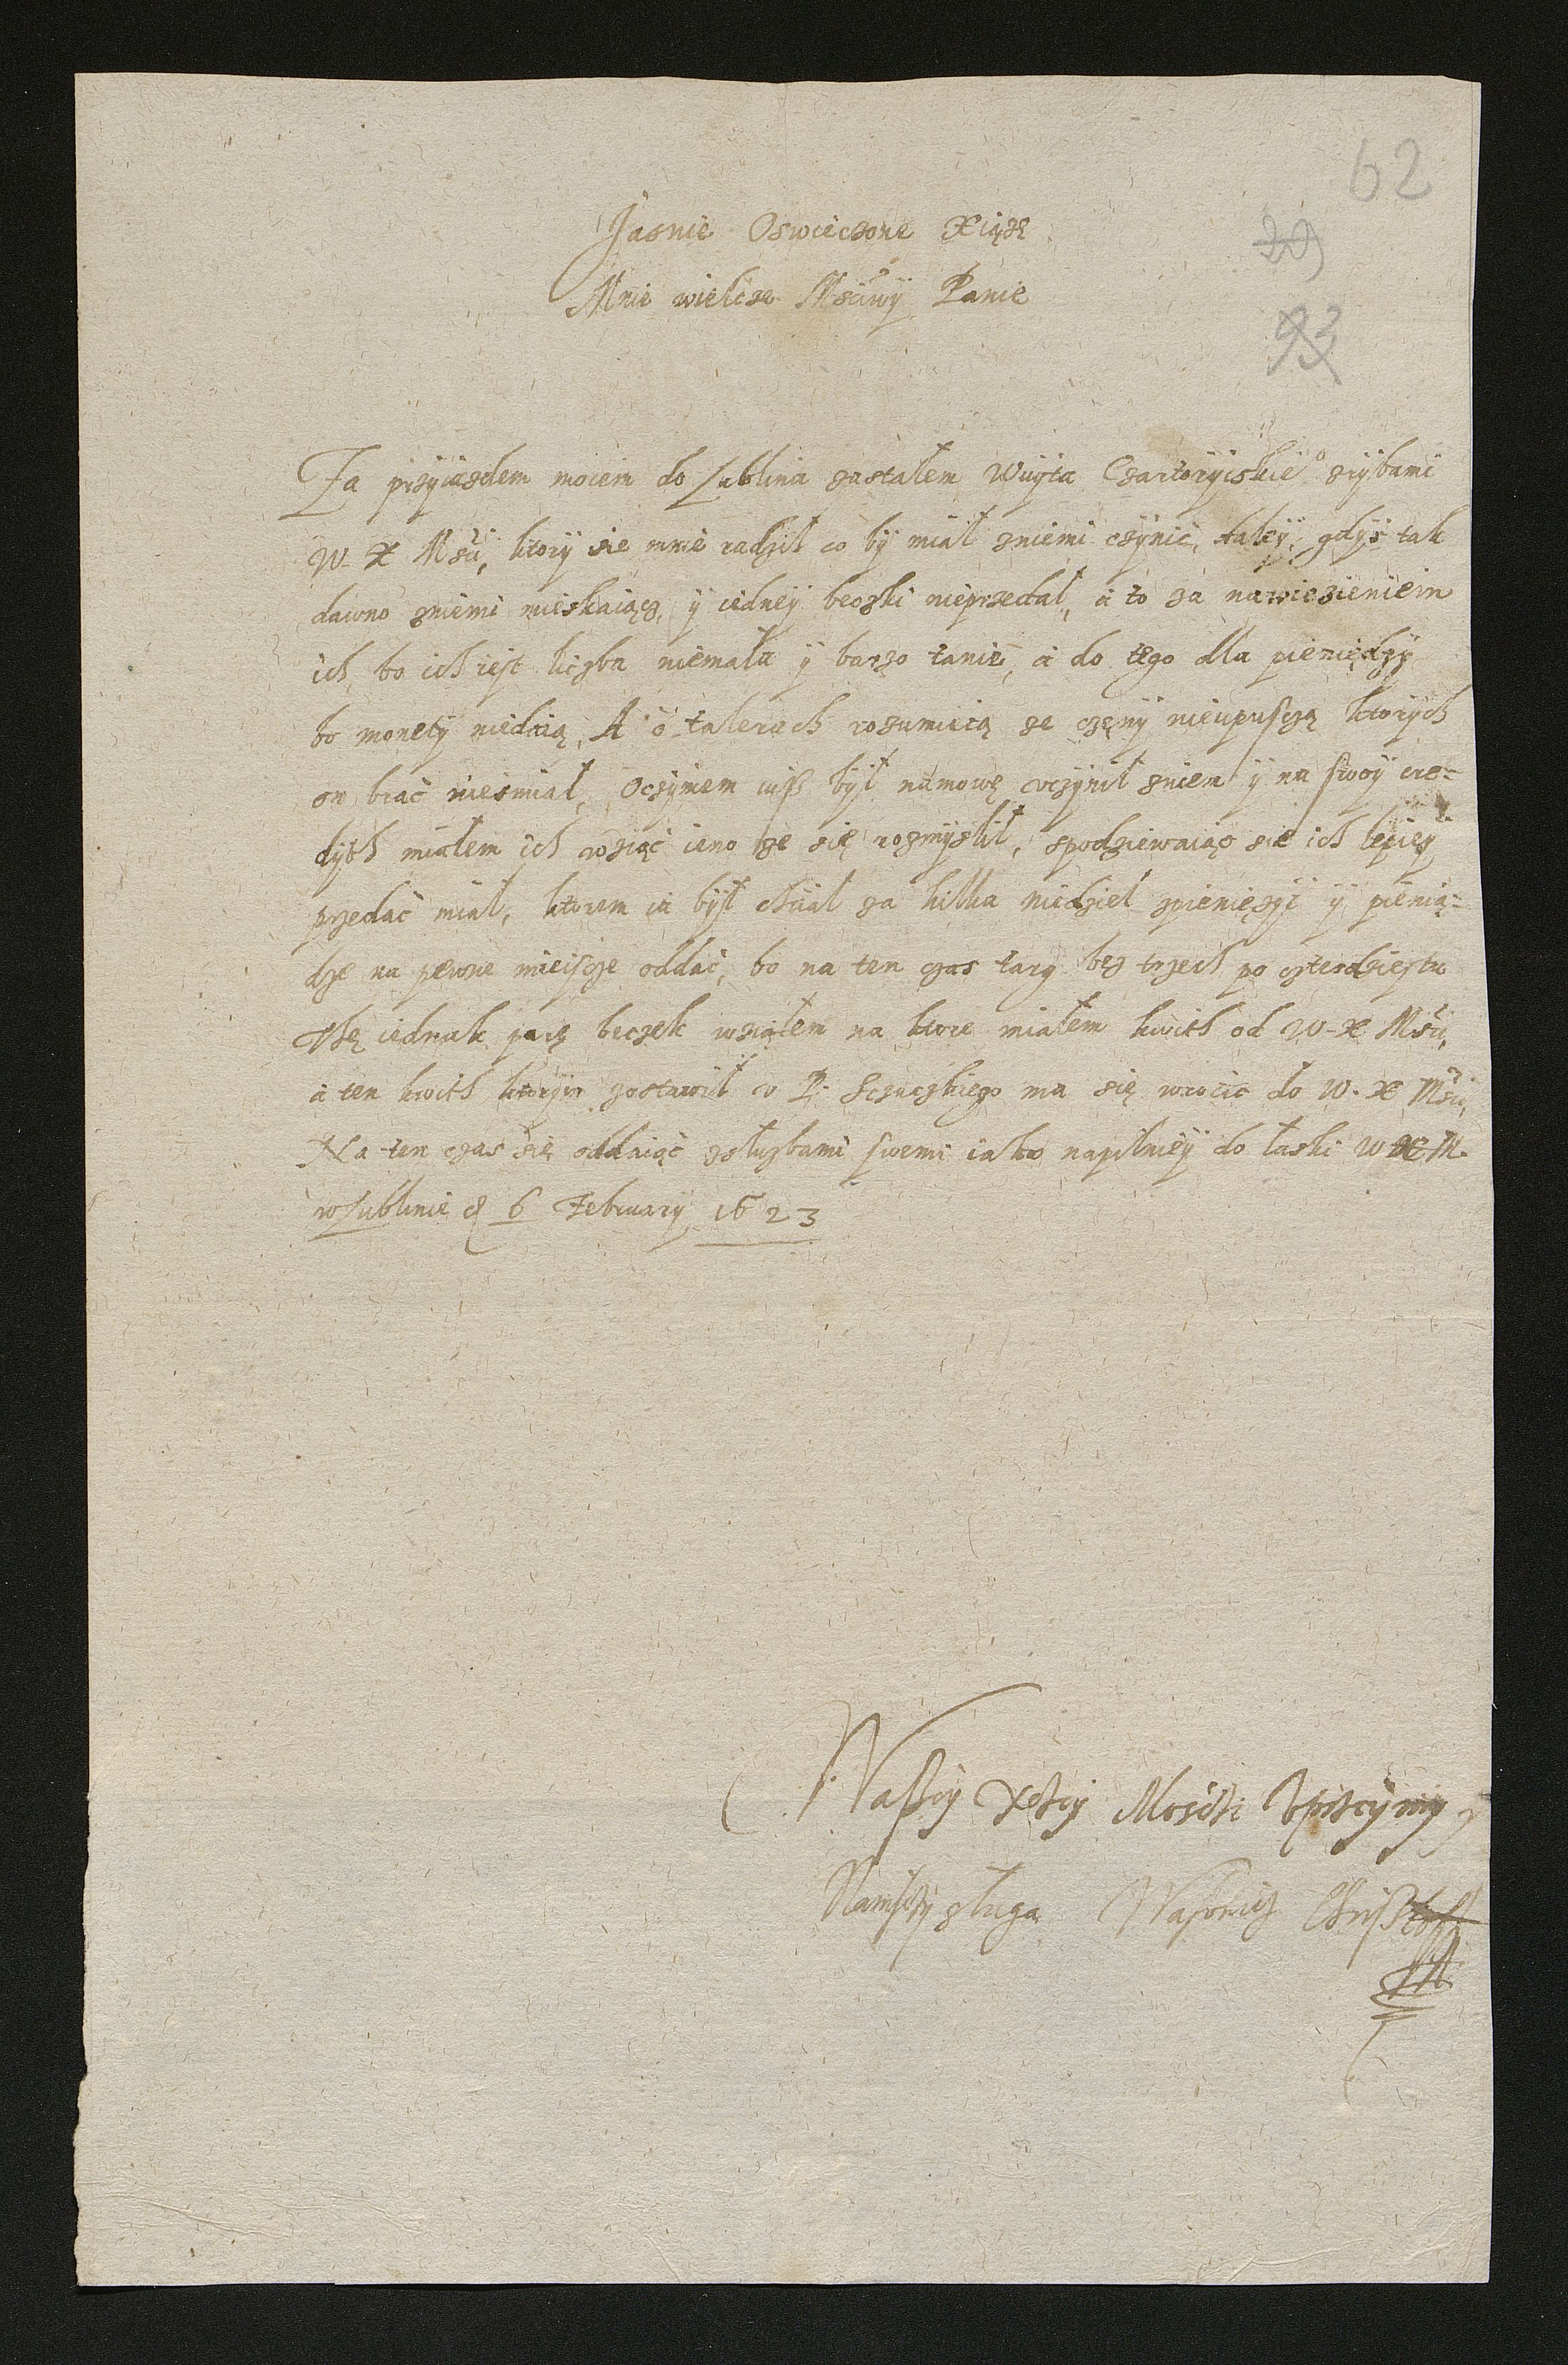 62
29
93
Jasnie Oswieczone Xiąze
Mnie wielcze Msciwÿ Panie
Za przÿiazdem moiem do Lublina zastałem Wuÿta Czartorÿiskie⁰ zrÿbami
W. X Msci, ktorÿ sie mnie radził co bÿ miał zniemi czÿnić, gdÿż tak
dawno zniemi mieskaiącz, ÿ iednеÿ beczki nieprzedał, a to za nawiezieniem
ich, bo ich iest liczba niemała ÿ barzo tanie, a do tego dla pieniędzÿ
bo monetÿ niedaią, A o talerach rozumieią ze czenÿ nieupusczą ktorÿch
on brać niesmiał, Oczÿmem iusz bÿł namowę vczÿnił zniem ÿ na swoÿ cre=
dÿth miałem ich wziąć ieno ze się rozmÿslił, spodziewaiąc sie ich lepieÿ
przedać miał, ktorem ia bÿł chciał za kilka niedziel zpieniezÿć ÿ pienią=
dze na pewne mieiscze oddać, bo na ten czas targ bez trzech po czterdziestu
iednak parę beczek wziąłem na ktore miałem kwith od W. X Msci,
a ten kwith ktorÿm zostawił v P. Sczuczkiego ma się wrocić do W. X Msci,
Na ten czas się oddaiąć zsłuzbami swemi iako napilnieÿ do łaski W X M.
w Lublinie d 6 Februarÿ 1623
Waszeÿ Xczeÿ Mości Vprzeÿmÿ
Namszÿ sługa Christoff